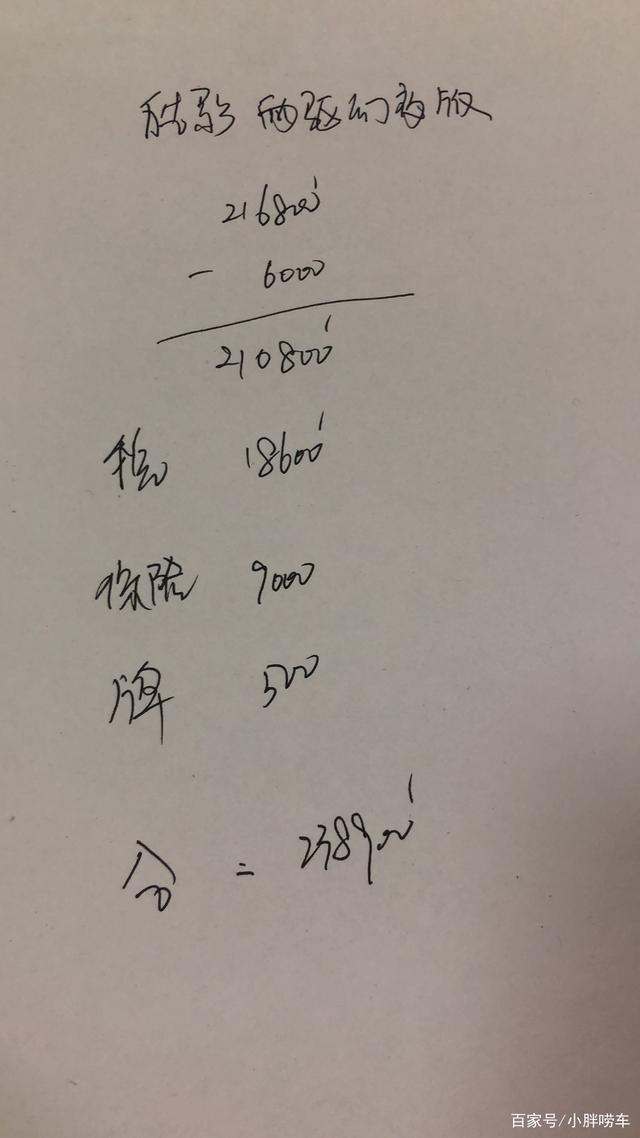 酷影 两驱幻夜版
216800
- 6000
210800
税 18600
保险 9000
牌 500
合 = 238900
百家号/小胖唠车